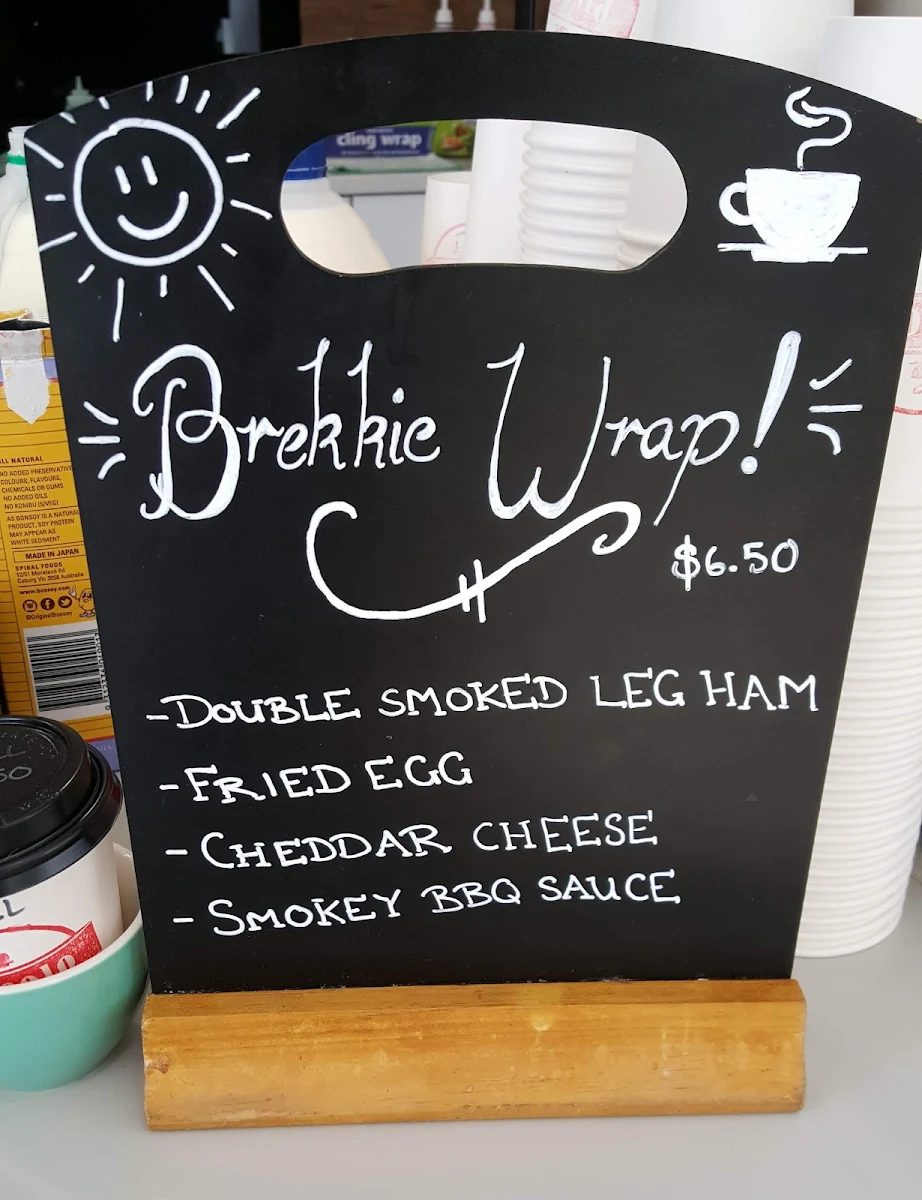 cling wrap
Brekkie Wrap!
$6.50
-DOUBLE SMOKED LEG HAM
-FRIED EGG
- CHEDDAR CHEESE
- SMOKEY BBQ SAUCE
ALL NATURAL
NO ADDED PRESERVATIVE
COLOURS, FLAVOURS,
CHEMICALS OR GUMS
NO ADDED OILS
NO KOMBU (S/VEG)
AS BONSOY IS A NATURAL
PRODUCT, SOY PROTEIN
MAY APPEAR AS
WHITE SEDIMENT
MADE IN JAPAN
SPIRAL FOODS
Coburg Vic 3058 Australia
www.bonsoy.com
@OriginalBonsoy